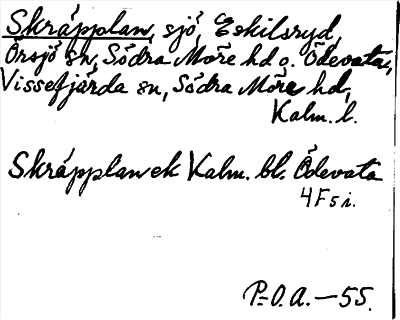 Skräpplan, sjö, Eskilsryd,
Örsjö sn, Södra Möre hd o. Ödevata,
Vissefjärda sn, Södra Möre hd,
Kalm. l.
Skräpplan ek Kalm. bl. Ödevata
4F5i.
P-O.A.—55.